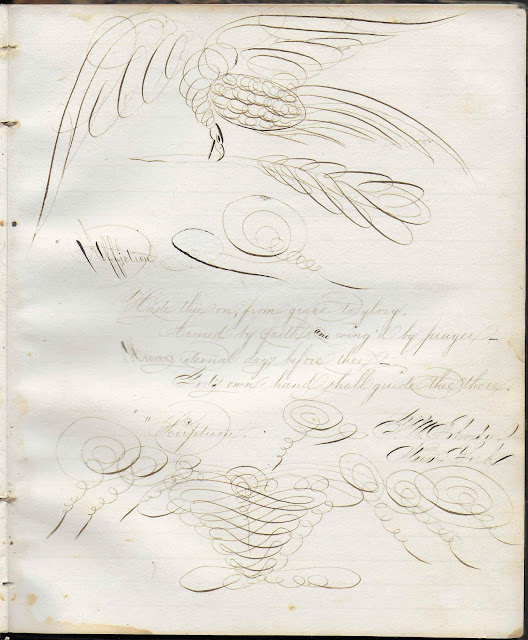 "Affection
Haste thee on, from grace to glory.
Armed by faith, and wing'd by prayer -
eternal day's before thee -
God's own hand shall guide thee there.
New York